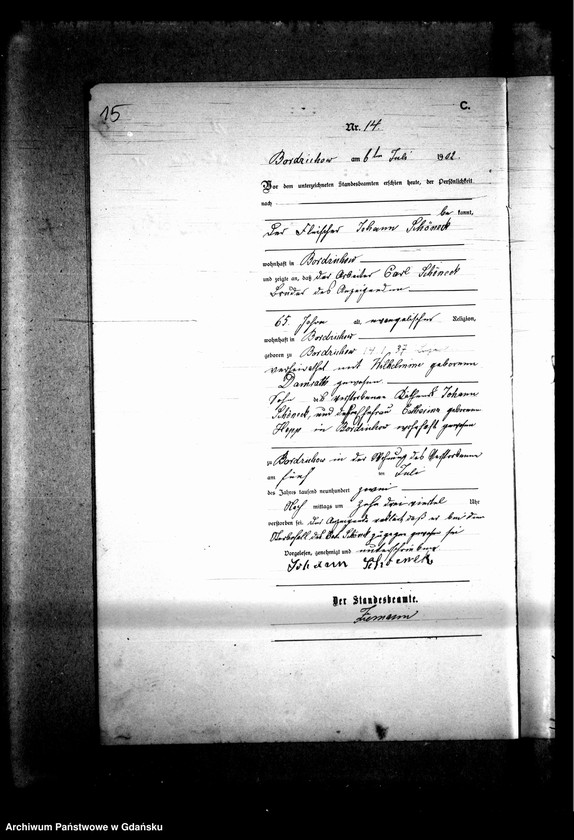 15
C.
Nr. 14.
Bordzichow am 6ten Juli 1902.
Vor dem unterzeichneten Standesbeamten erschien heute, der Persönlichkeit
nach
be kannt,
der Fleischer Johann Schöneck
wohnhaft in Bordzichow
und zeigte an, daß der Arbeiter Carl Schöneck
Bruder des Anzeigenden
65 Jahre alt, evangelischer Religion,
wohnhaft in Bordzichow
geboren zu Bordzichow 14. 37
verheirathet mit Wilhelmine geborenen
gewesen
Sohn des verstorbenen Johann
Schöneck, und Catharina geborenen
Hepp in Bordzichow wohnhaft gewesen
zu Bordzichow in der Wohnung des Verstorbenen
am fünf ten Juli
des Jahres tausend neunhundert zwei
Nach mittags um zehn drei viertel Uhr
verstorben sei. Der Anzeigende erklärt daß er bei dem
Sterbefall des Carl Schöneck zugegen gewesen sei
Vorgelesen, genehmigt und unterschrieben
Johann Schöneck
Der Standesbeamte.
Ziemann
Archiwum Państwowe w Gdańsku